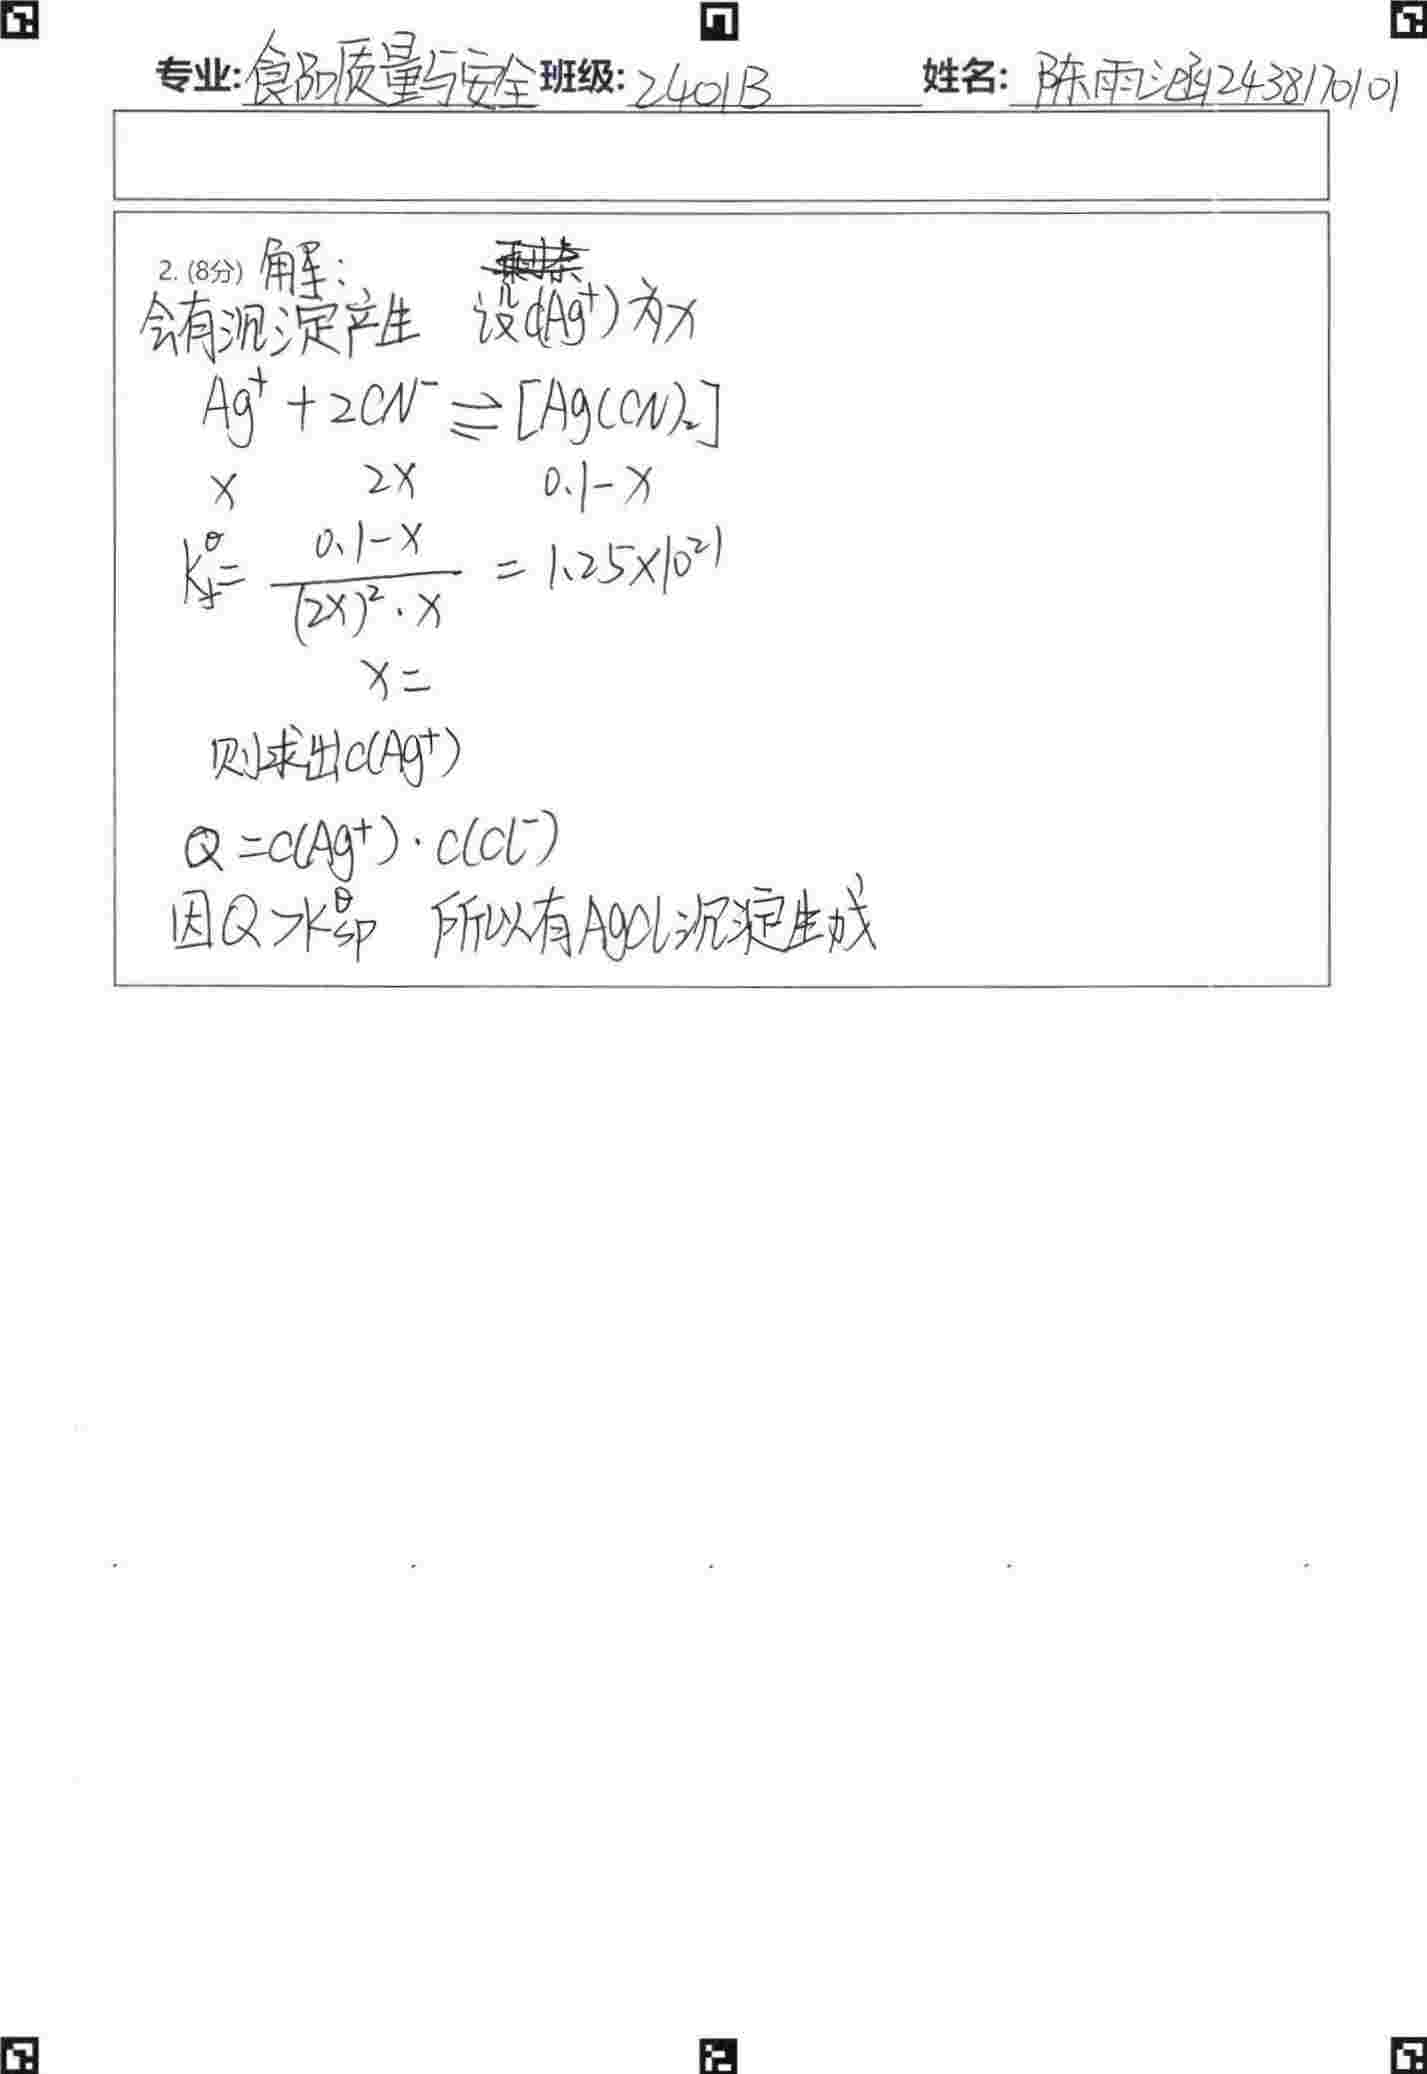 专业: 食品质量与安全 班级: 2401B 姓名: 陈雨涵2438170101
2. (8分) 解:
会有沉淀产生 设c(Ag⁺)为x
Ag⁺ + 2CN⁻ ⇌ [Ag(CN)₂]
x 2x 0.1-x
K_f^θ = (0.1-x)/((2x)²·x) = 1.25×10²¹
x =
则求出c(Ag⁺)
Q = c(Ag⁺)·c(Cl⁻)
因Q>K_sp^θ 所以有AgCl沉淀生成